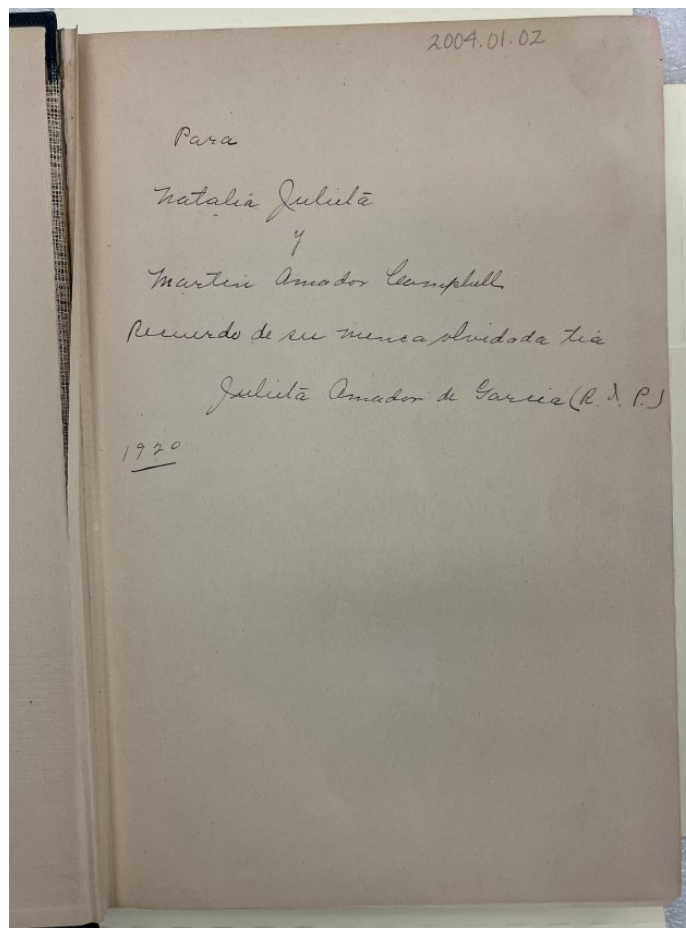 2004.01.02
Para
Natalia Julieta
y
Martin Amador Campbell
Recuerdo de su nunca olvidada tia
Julieta Amador de Garcia (R. I. P.)
1920